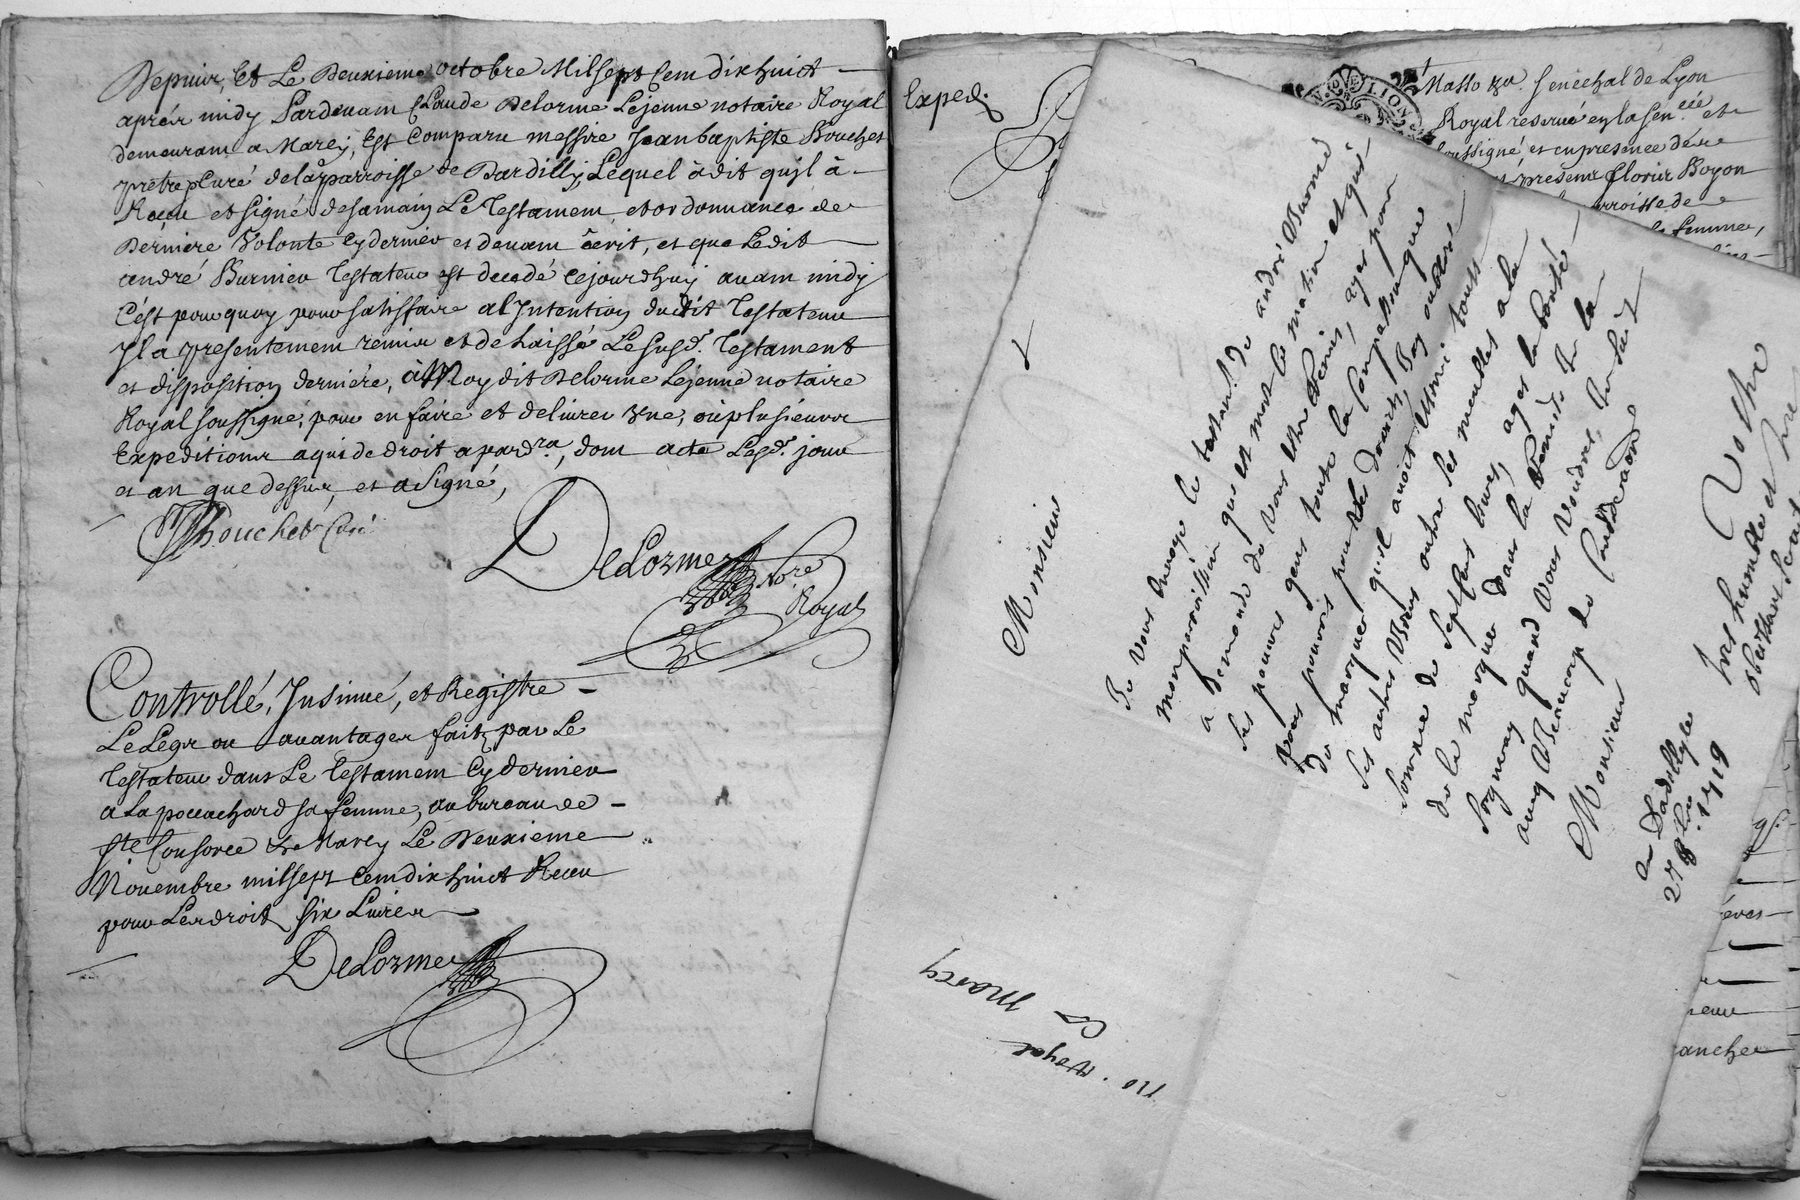 Depuis, Et Le Deuxieme octobre Milsept Cem dixhuict
aprés midy Pardevam Claude Delorme Lejeune notaire Royal
demeuram a Marcy, Est Comparu messire Jeanbaptiste Bouchet
prêtre & Curé de la parroisse de Dardilly, Lequel à dit qu'jl à
Receu et signé desamain Le Testamem et ordonnance de
Derniere Volonte Cydernier et devam êcrit, et que Ledit
andré Burnier Testateur est decedé cejourdhuy avam midy
C'est pourquoy pour satisfaire al'Intention dudit Testateur
Jl a presentemem remis et de Laissé Le susd. Testament
et disposition derniére, à Moy dit Delorme Lejeune notaire
Royal soussigné, pour en faire et delivrer une, ou plusieurs
Expeditions a qui de droit apard.ra, dom acte Lesd. jour
et an que dessus, et a Signé,
JBouchet Curé
DeLorme
No.re
Royal
Controllé, Jnsinué, et Registré
Le Legs ou avantages fait par Le
Testateur dans Le Testamem Cydernier
a La pocachard sa femme, au bureau de
Ste Consorce & Marcy Le Deuxieme
Novembre mil sept Cem dix huict Receu
pour Les droit six Livres
DeLorme
Exped.
LION
Masson. Senéchal de Lyon
Royal reservé en la Sén.cée et
soussigné et en presence de
presens florir Boyon
parroisse de
femme,
Monsieur
Je vous envoye le testam.t de andré Burnié
mon parroissien qui est mort ce matin et qui
a demandé de vous estre Remis, ayes pour
ses pauvres gens toute la Compassion que
vous pourres pour les droits, Soy oublié
de marquer qu'il avoit donné tous
ses autres Biens outre ses meubles a la
somme de sept cens livres, ayes la bonté
de le marquer dans la Remise de la
Soy quand vous voudres, Je suis
avec Beaucoup de Consideration
Monsieur
Vostre
tres humble et
obeissant
a Dardilly le
27 8bre 1719
no. Royal
a Marcy